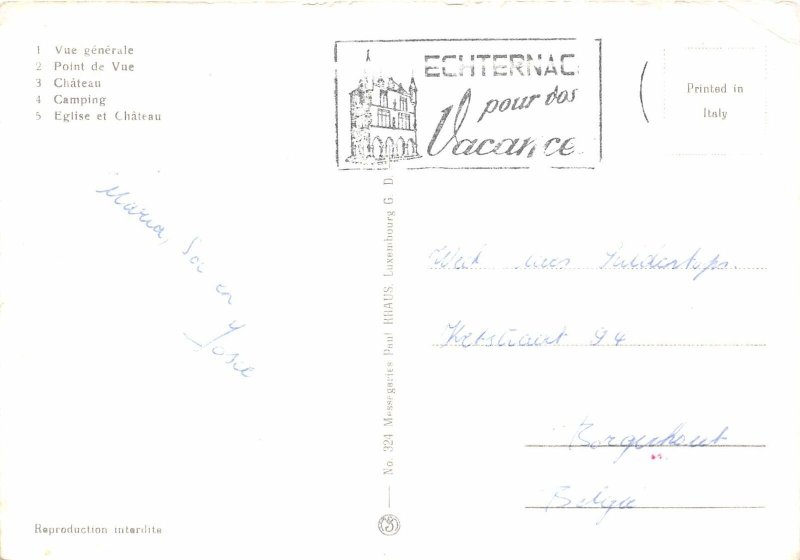 1 Vue générale
2 Point de Vue
3 Château
4 Camping
5 Eglise et Château
ECHTERNAC
pour vos
Vacance
Printed in
Italy
Maria,
en
No. 324 Messageries Paul KRAUS, Luxembourg G. D.
94
Borgerhout
België
Reproduction interdite